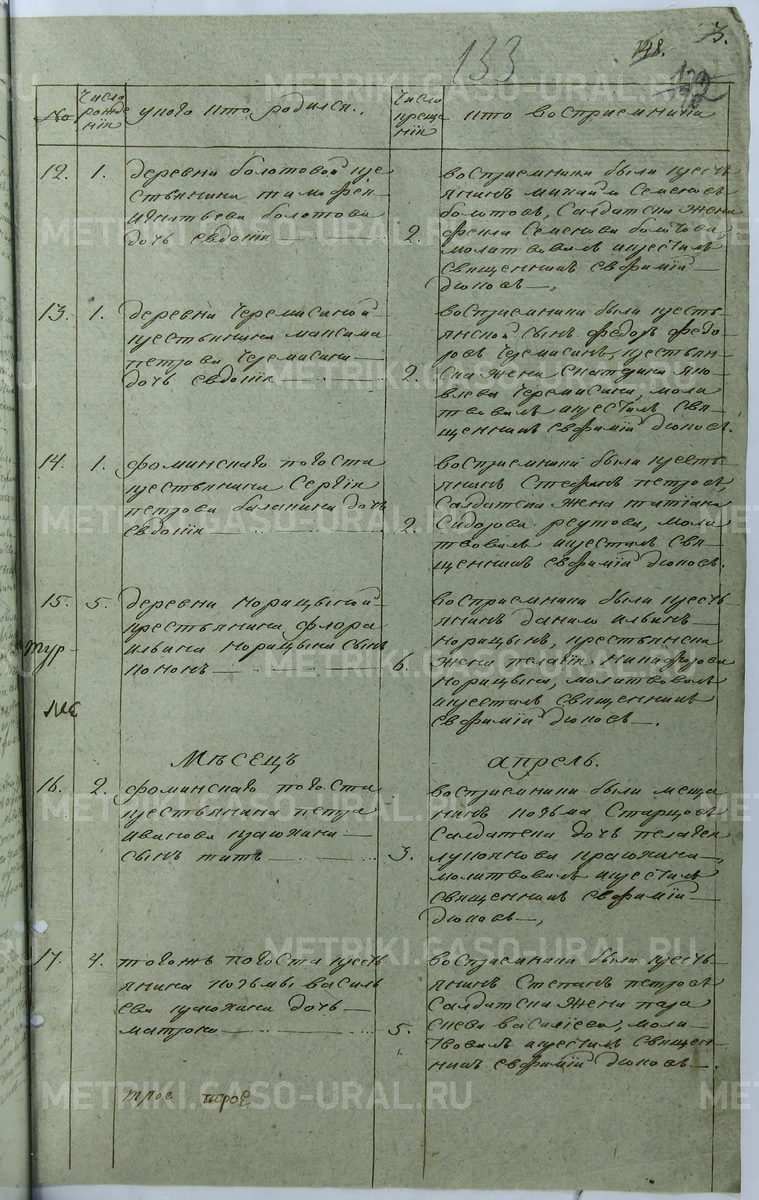 133
148.
3.
№
Число рождения
у кого кто родился.
Число крещения
кто восприемники
12. 1. деревни болотовой кре
стьянина тимофея
игнатьева болотова
дочь евдокия
2.
восприемники были кресть
янинъ михаилъ Семеновъ
болотовъ, Салдатска жена
Семенова болотова
молитвовалъ икрестилъ
священникъ евфимiй
13. 1. деревни Черемисиной
крестьянина максима
петрова Черемисина
дочь евдокiя
2.
восприемники были кресть
янской сынъ федоръ федо
ровъ Черемисинъ, крестьян
ска жена екатерина яко
влева Черемисина, моли
твовалъ икрестилъ свя
щенникъ евфимiй
14. 1. фоминскаго погоста
крестьянина Сергiя
петрова балакина дочь
евдокiя
2.
восприемники были кресть
янинъ Стефанъ петровъ,
Салдатска жена татiана
Сидорова реутова, моли
твовалъ икрестилъ свя
щенникъ евфимiй
15. 5. деревни Корицыной
крестьянина флора
ильина Корицына сынъ
кононъ
6.
восприемники были кресть
янинъ данило ильинъ
Корицынъ, крестьянска
жена пелагiя никифорова
Корицына, молитвовалъ
икрестилъ священникъ
евфимiй
Мѣсецъ апрель.
16. 2. фоминскаго погоста
крестьянина петра
иванова
сынъ титъ
3.
восприемники были меща
нинъ козьма Старцовъ
Салдатска дочь пелагея
лукоянова
молитвовалъ икрестилъ
священникъ евфимiй
17. 4. тогожъ погоста кресть
янина козьмы василь
ева дочь
матрона
5.
восприемники были кресть
янинъ Степанъ петровъ
Салдатска жена пара
скева василiева, моли
твовалъ икрестилъ священ
никъ евфимiй
трое трое
METRIKI.GASO-URAL.RU